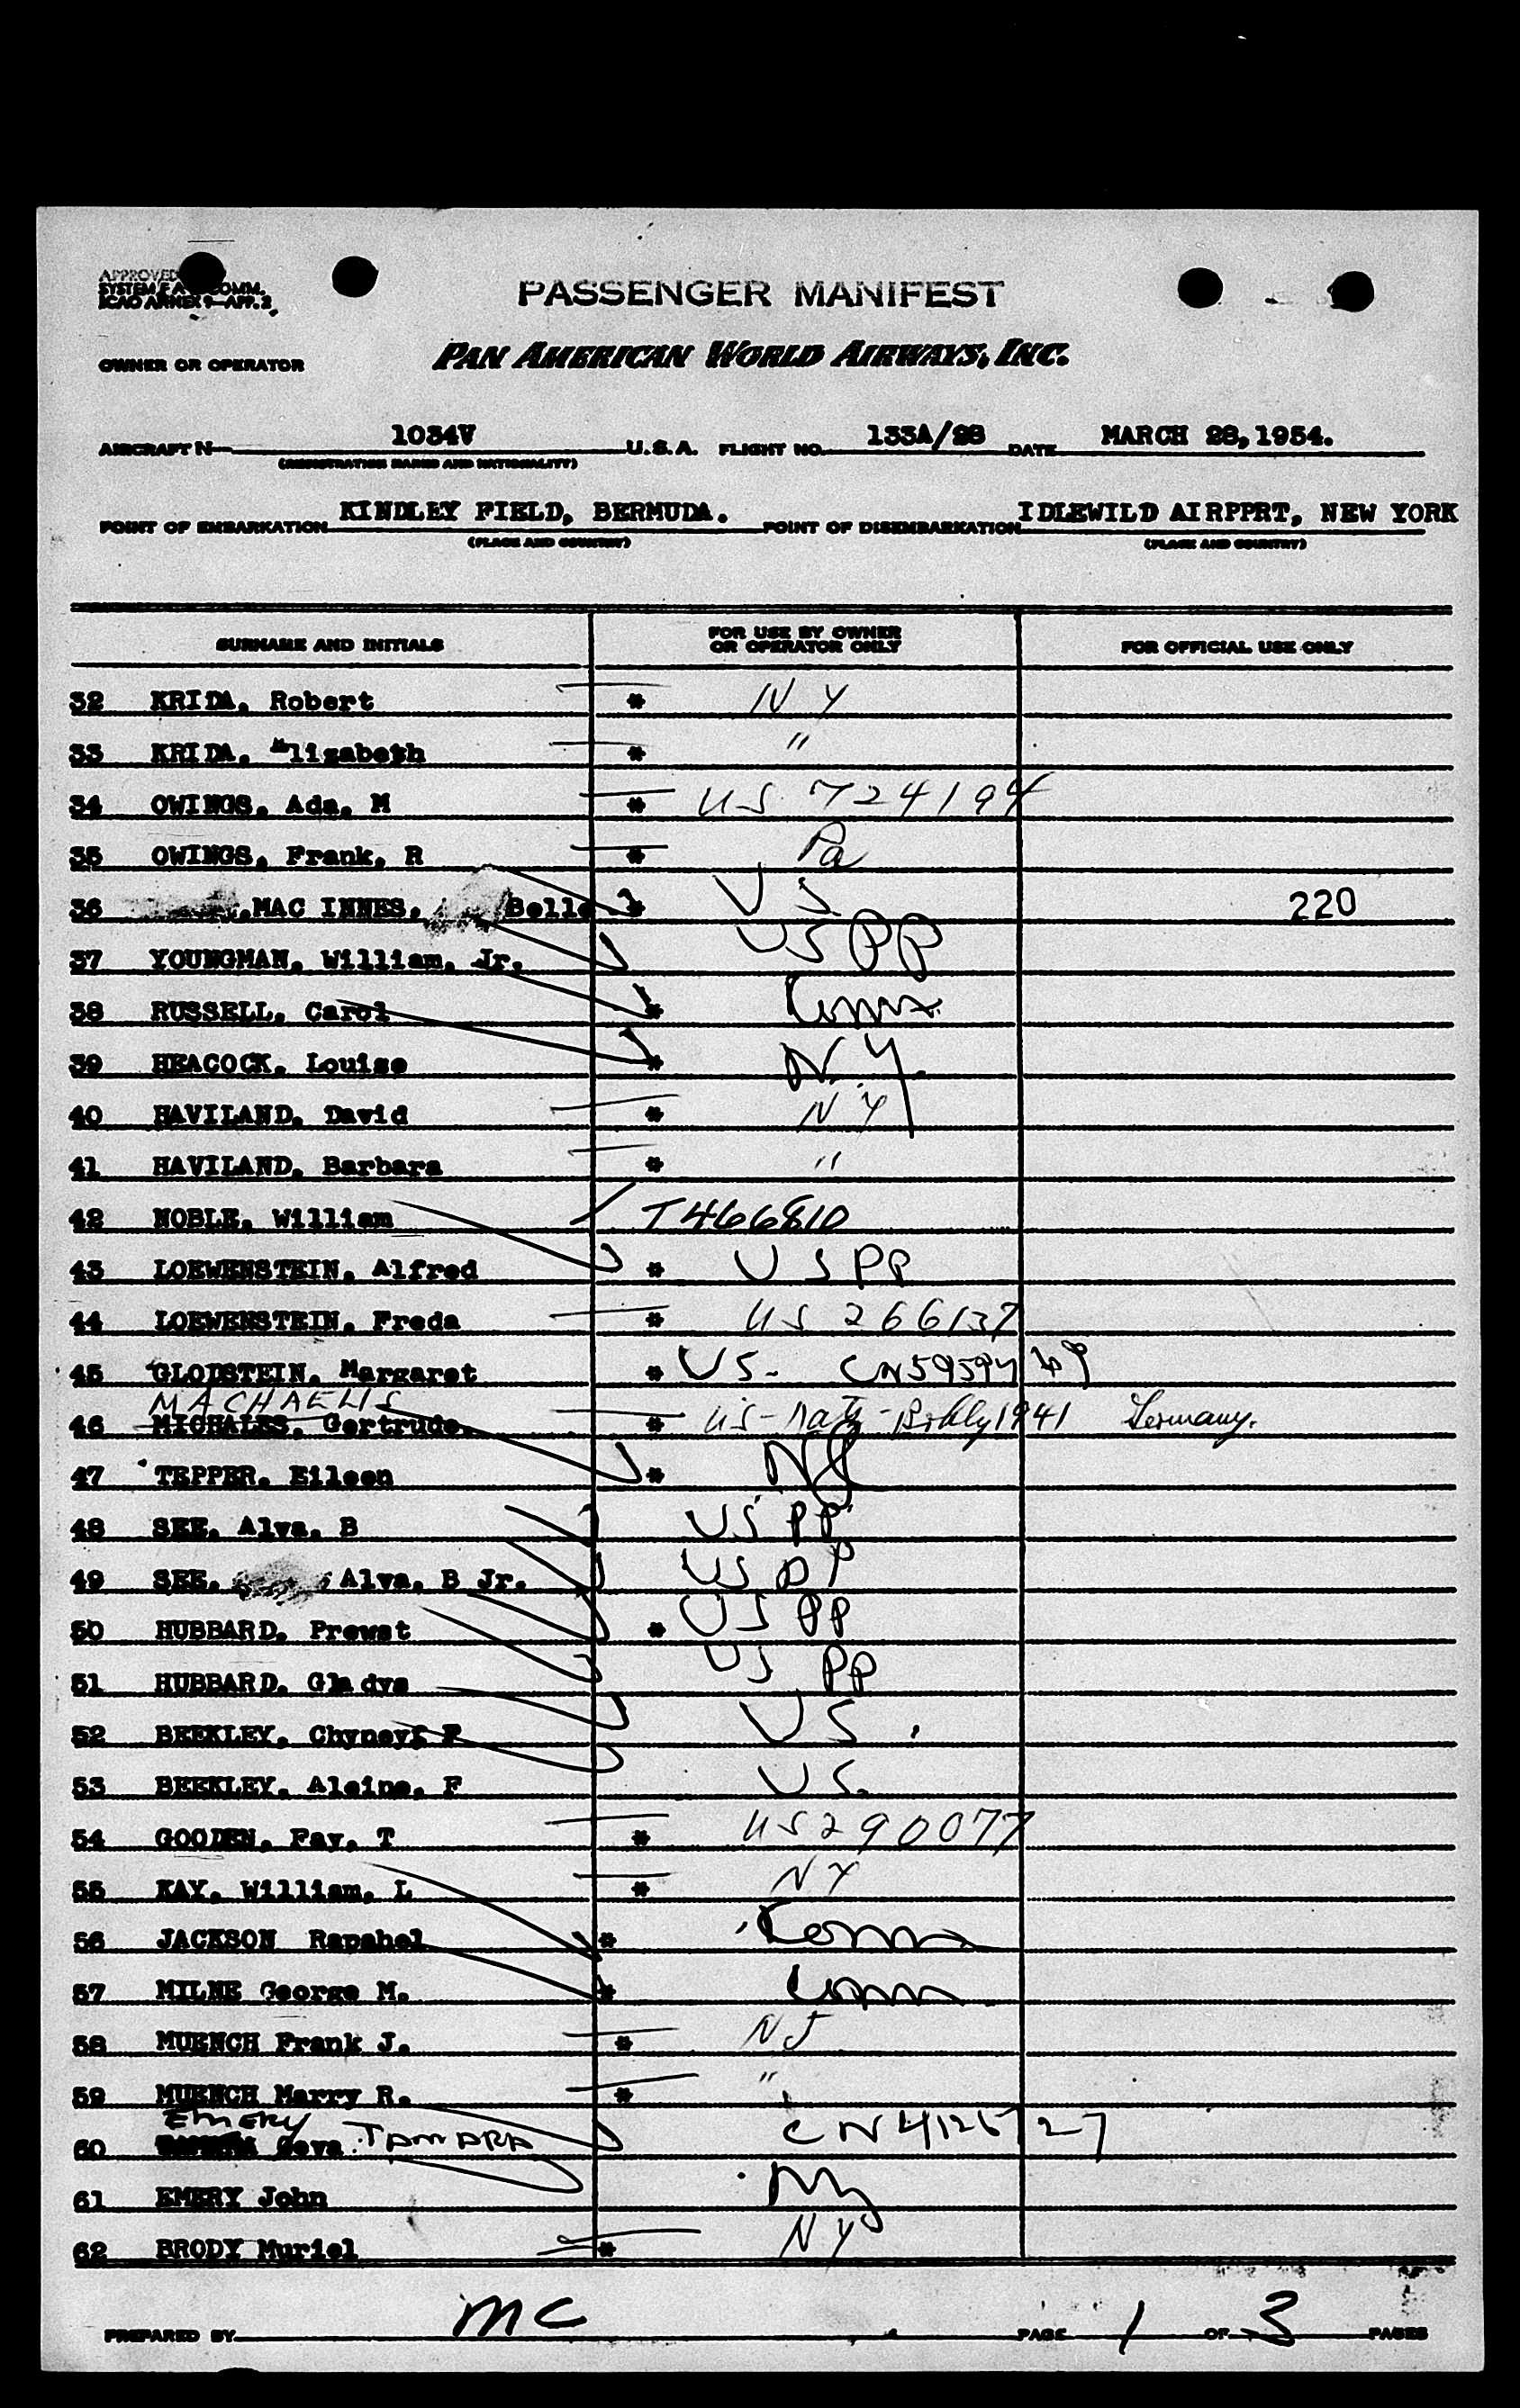 APPROVED
SYSTEM F A COMM.
ICAO ANNEX 9—APP. 2
PASSENGER MANIFEST
OWNER OR OPERATOR PAN AMERICAN WORLD AIRWAYS, INC.
AIRCRAFT N 1034V U.S.A. FLIGHT NO. 133A/28 DATE MARCH 28, 1954.
(REGISTRATION MARKS AND NATIONALITY)
POINT OF EMBARKATION KINDLEY FIELD, BERMUDA. POINT OF DISEMBARKATION IDLEWILD AIRPPRT, NEW YORK
(PLACE AND COUNTRY) (PLACE AND COUNTRY)
SURNAME AND INITIALS FOR USE BY OWNER OR OPERATOR ONLY FOR OFFICIAL USE ONLY
32 KRIDA, Robert * N Y
33 KRIDA, Elizabeth * "
34 OWINGS, Ada, M * US 724194
35 OWINGS, Frank, R * Pa
36 MAC INNES, Belle * US 220
37 YOUNGMAN, William, Jr. US PP
38 RUSSELL, Carol * Conn.
39 HEACOCK, Louise * N.Y.
40 HAVILAND, David * N Y
41 HAVILAND, Barbara * "
42 NOBLE, William T466810
43 LOEWENSTEIN, Alfred * US PP
44 LOEWENSTEIN, Freda * US 266137
45 GLODSTEIN, Margaret * US-
MACHAELIS
46 MICHALES, Gertrude, * US - Natz - Bklyn 1941 Germany.
47 TEPPER, Eileen * NY
48 SEE, Alva, B US PP
49 SEE, Alva, B Jr. US PP
50 HUBBARD, Prewst * US PP
51 HUBBARD, Gladys US PP
52 BEEKLEY, Chyneyf F US
53 BEEKLEY, Aleine, F US.
54 GOODEN, Fay, T * US 290077
55 KAY, William, L * NY
56 JACKSON Rapahel * Conn
57 MILNE George M. * Conn
58 MUENCH Frank J. * NJ
59 MUENCH Marry R. * "
EMERY
60 Geva TAMARA CN 4125727
61 EMERY John NY
62 BRODY Muriel * NY
PREPARED BY MC PAGE 1 OF 3 PAGES